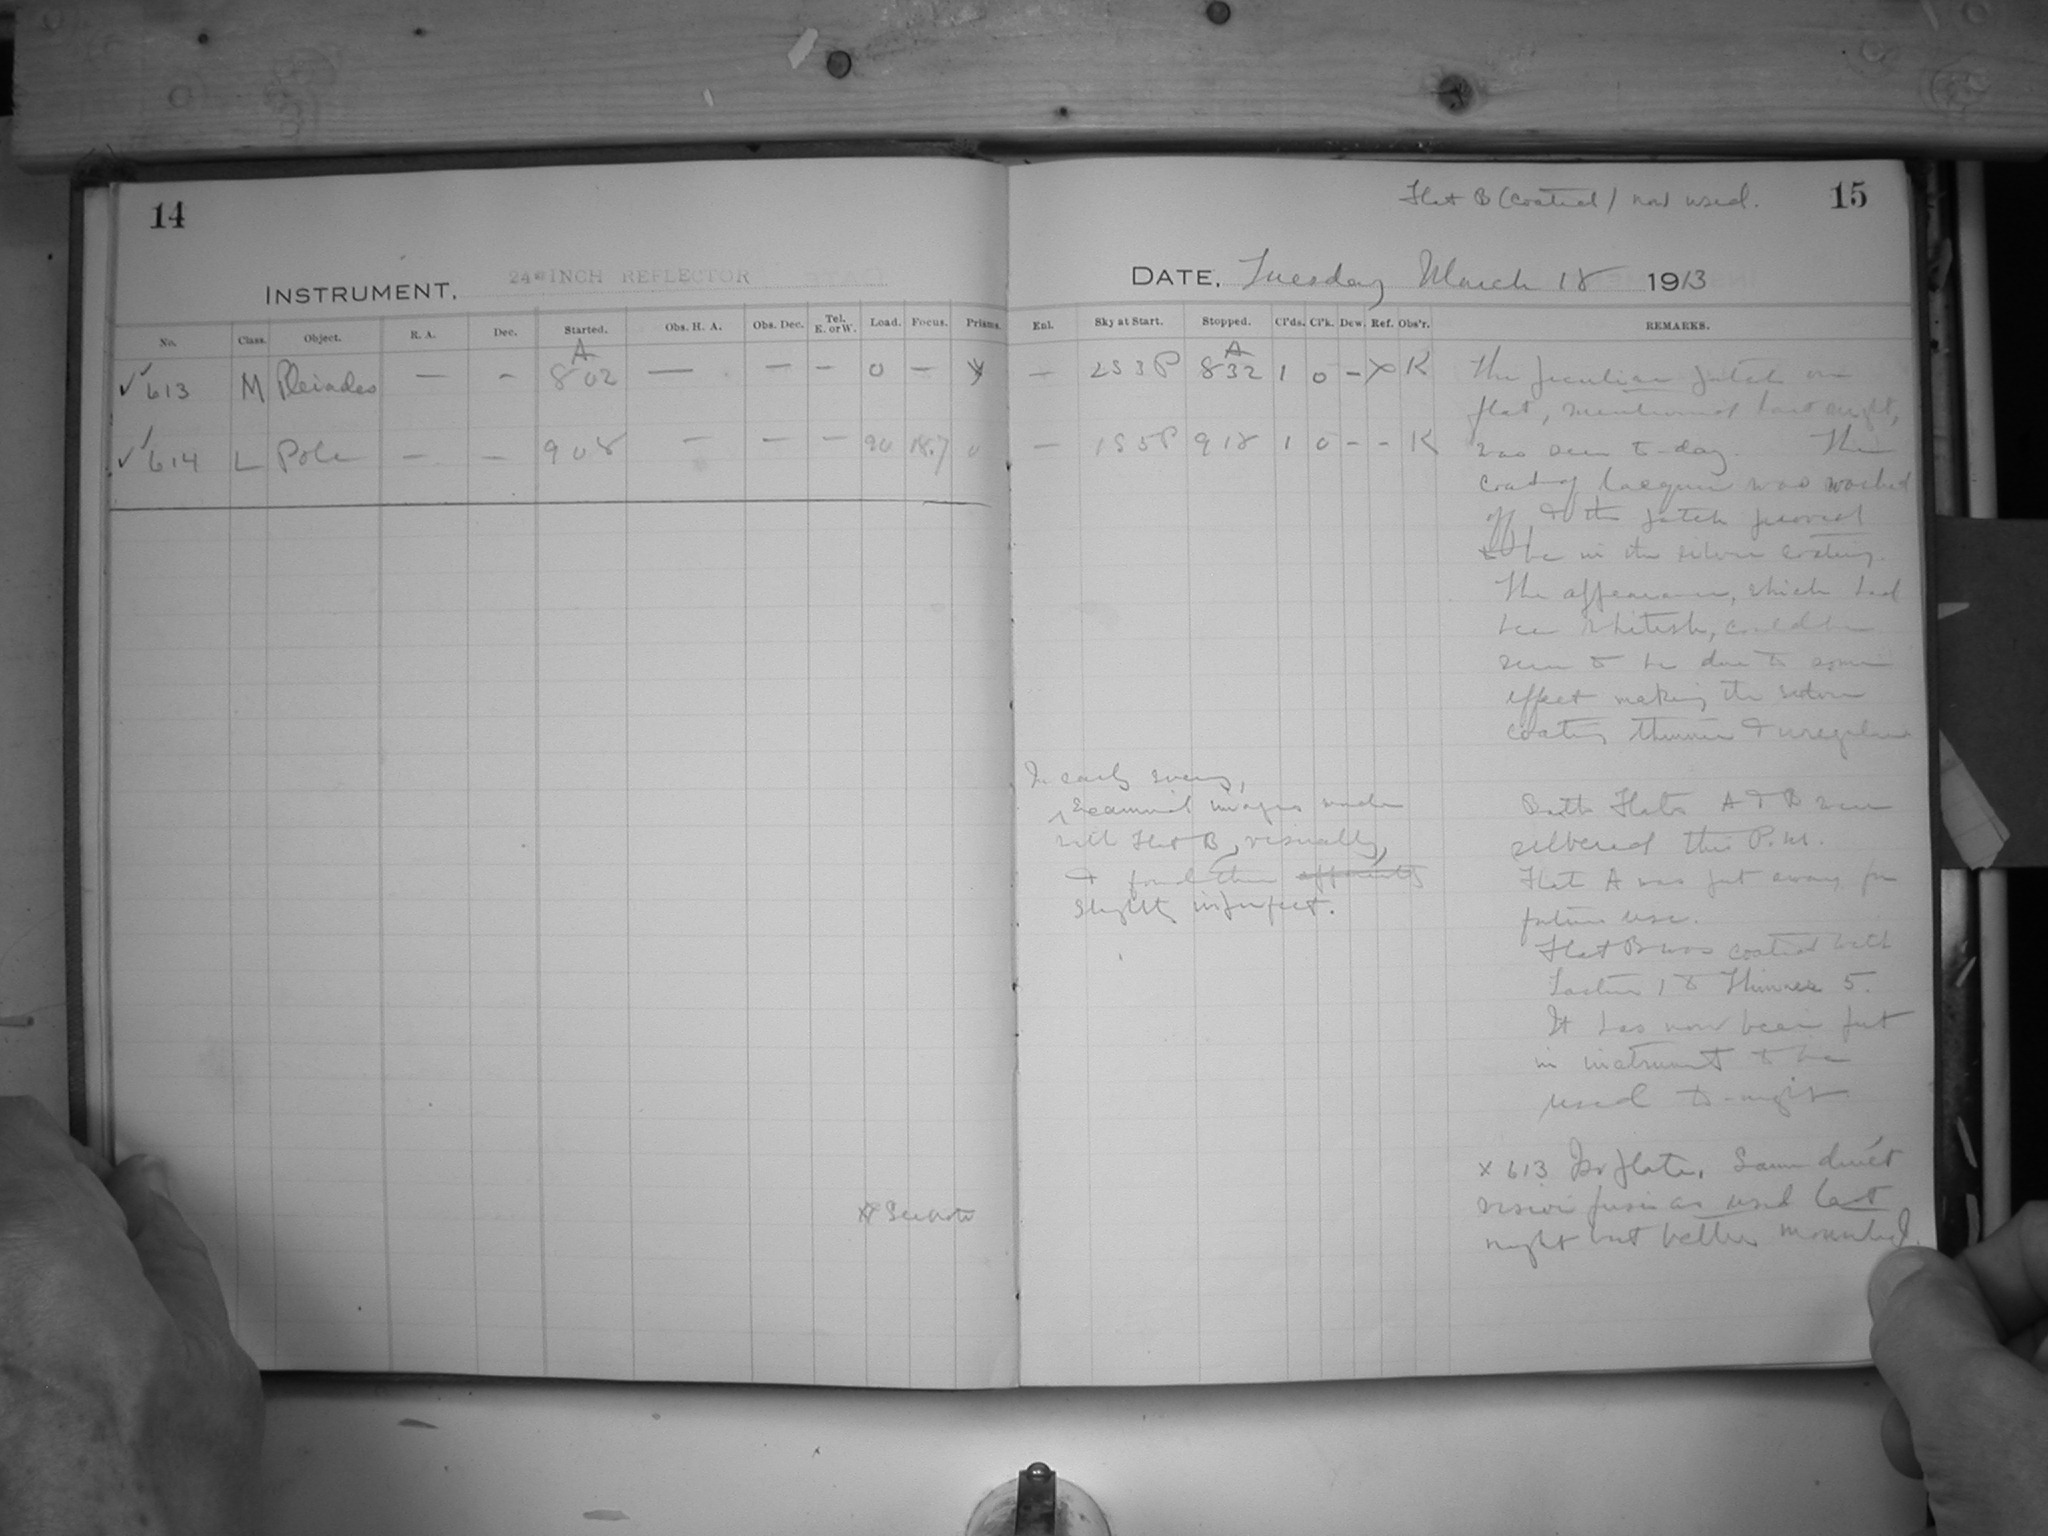 14
INSTRUMENT. 24-INCH REFLECTOR
No. Class. Object. R. A. Dec. Started. Obs. H. A. Obs. Dec. Tel. E. or W. Load. Focus. Prisms.
A
✓✓613 M Pleiades — - 8 02 — - - 0 — X
✓✓614 L Pole — — 9 08 — — — 20 18.7 0
X See note
Flat B (coated) now used. 15
DATE. Tuesday March 18 1913
Enl. Sky at Start. Stopped. Cl'ds. Cl'k. Dew. Ref. Obs'r. REMARKS.
A
— 2S3P 8 32 1 0 - X K
— 1S5P 9 18 1 0 - - K
The peculiar patch on
flat, mentioned last night,
was seen to-day. The
coat of lacquer was washed
off, & the patch proved
to be in the silver coating.
The appearance, which had
been whitish, could be
seen to be due to some
effect making the silver
coating thinner & irregular
In early evening,
examined images made
with Flat B, visually,
& found them apparently
slightly imperfect.
Both Flats A & B were
silvered this P.M.
Flat A was put away for
future use.
Flat B was coated with
1 to Thinner 5.
It has now been put
in instrument to be
used to-night
X 613 Iso plate. Same direct
vision prism as used last
night but better mounted.